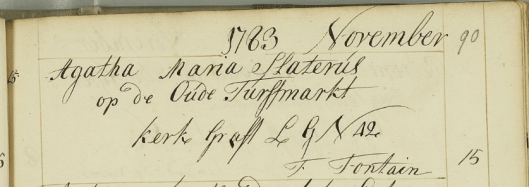 1783 November 90
15 Agatha Maria Slaterus
op de Oude Turffmarkt
kerk Grafft L G N 42
F. Fontain 15